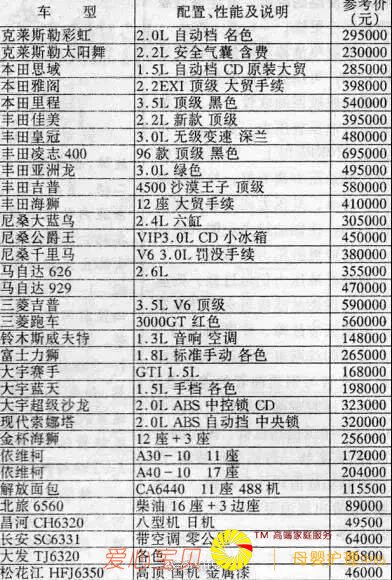 车 型 配置、性能及说明 参考价(元)
克莱斯勒彩虹 2.0L 自动档 名色 295000
克莱斯勒太阳舞 2.2L 安全气囊 含费 230000
本田思域 1.5L 自动档 CD 原装大贸 285000
本田雅阁 2.2EXI 顶级 大贸手续 398000
本田里程 3.5L 顶级 黑色 540000
丰田佳美 2.2L 新款 顶级 395000
丰田皇冠 3.0L 无级变速 深兰 480000
丰田凌志 400 96 款 顶级 黑色 695000
丰田亚洲龙 3.0L 绿色 495000
丰田吉普 4500 沙漠王子 顶级 580000
丰田海狮 12 座 大贸手续 410000
尼桑大蓝鸟 2.4L 六缸 305000
尼桑公爵王 VIP3.0L CD 小冰箱 450000
尼桑千里马 V6 3.0L 罚没手续 380000
马自达 626 2.6L 355000
马自达 929 470000
三菱吉普 3.5L V6 顶级 590000
三菱跑车 3000GT 红色 560000
铃木斯威夫特 1.3L 音响 空调 148000
富士力狮 1.8L 标准手动 各色 265000
大宇赛手 GTI 1.5L 168000
大宇蓝天 1.5L 手档 各色 198000
大宇超级沙龙 2.0L ABS 中控锁 CD 323000
现代索娜塔 2.0L ABS 自动挡 中央锁 320000
金杯海狮 12 座 + 3 座 256000
依维柯 A30-10 11 座 172000
依维柯 A40-10 17 座 204000
解放面包 CA6440 11 座 488 机 115500
北旅 6560 柴油 16 座 + 3 边座 89000
昌河 CH6320 八型机 日机 49500
长安 SC6331 带空调 零公 64000
大发 TJ6320 各色 36800
松花江 HFJ6350 高顶 国机 金属漆 46000
爱心宝贝
TM 高端家庭服务
母婴护理